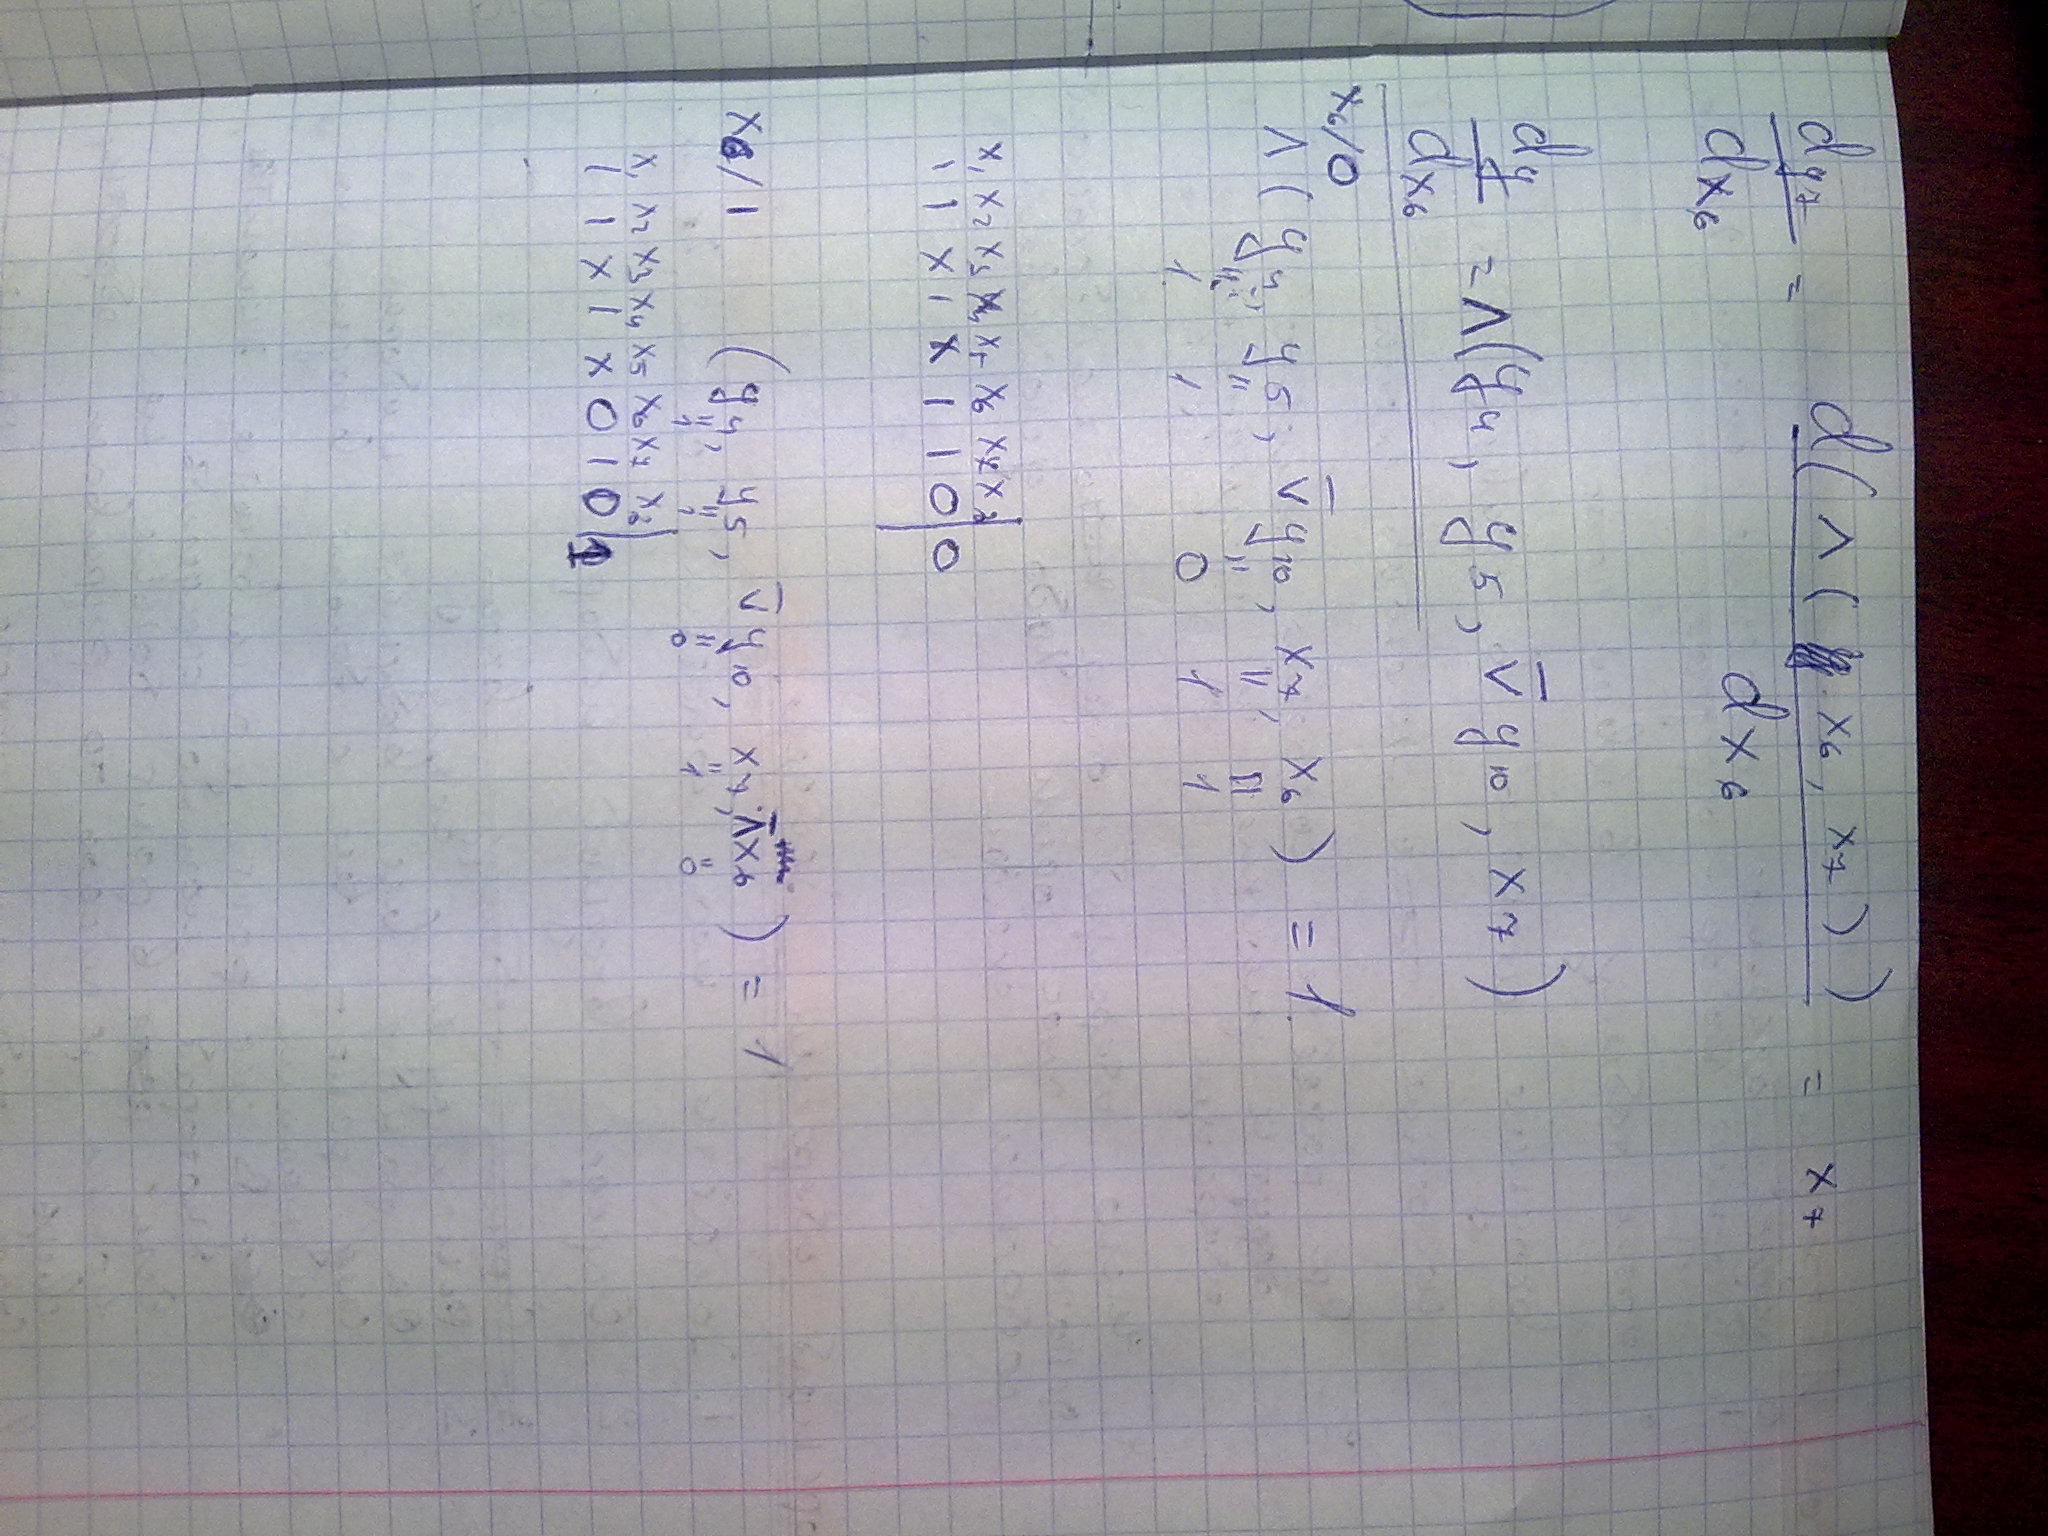 dy7/dx6 = d(∧(x6, x7))/dx6 = x7
dy/dx6 = ∧(y4, y5, ⊽y10, x7)
x6/0
∧(y4, y5, ⊽y10, x7, x6) = 1
" " " " "
1 1 0 1 1
x1 x2 x3 x4 x5 x6 x7 x8
1 1 x 1 x 1 1 0 | 0
x6/1 (y4, y5, ⊽y10, x7, ⊽x6) = 1
" " " " "
1 1 0 1 0
x1 x2 x3 x4 x5 x6 x7 x8
1 1 x 1 x 0 1 0 | 1